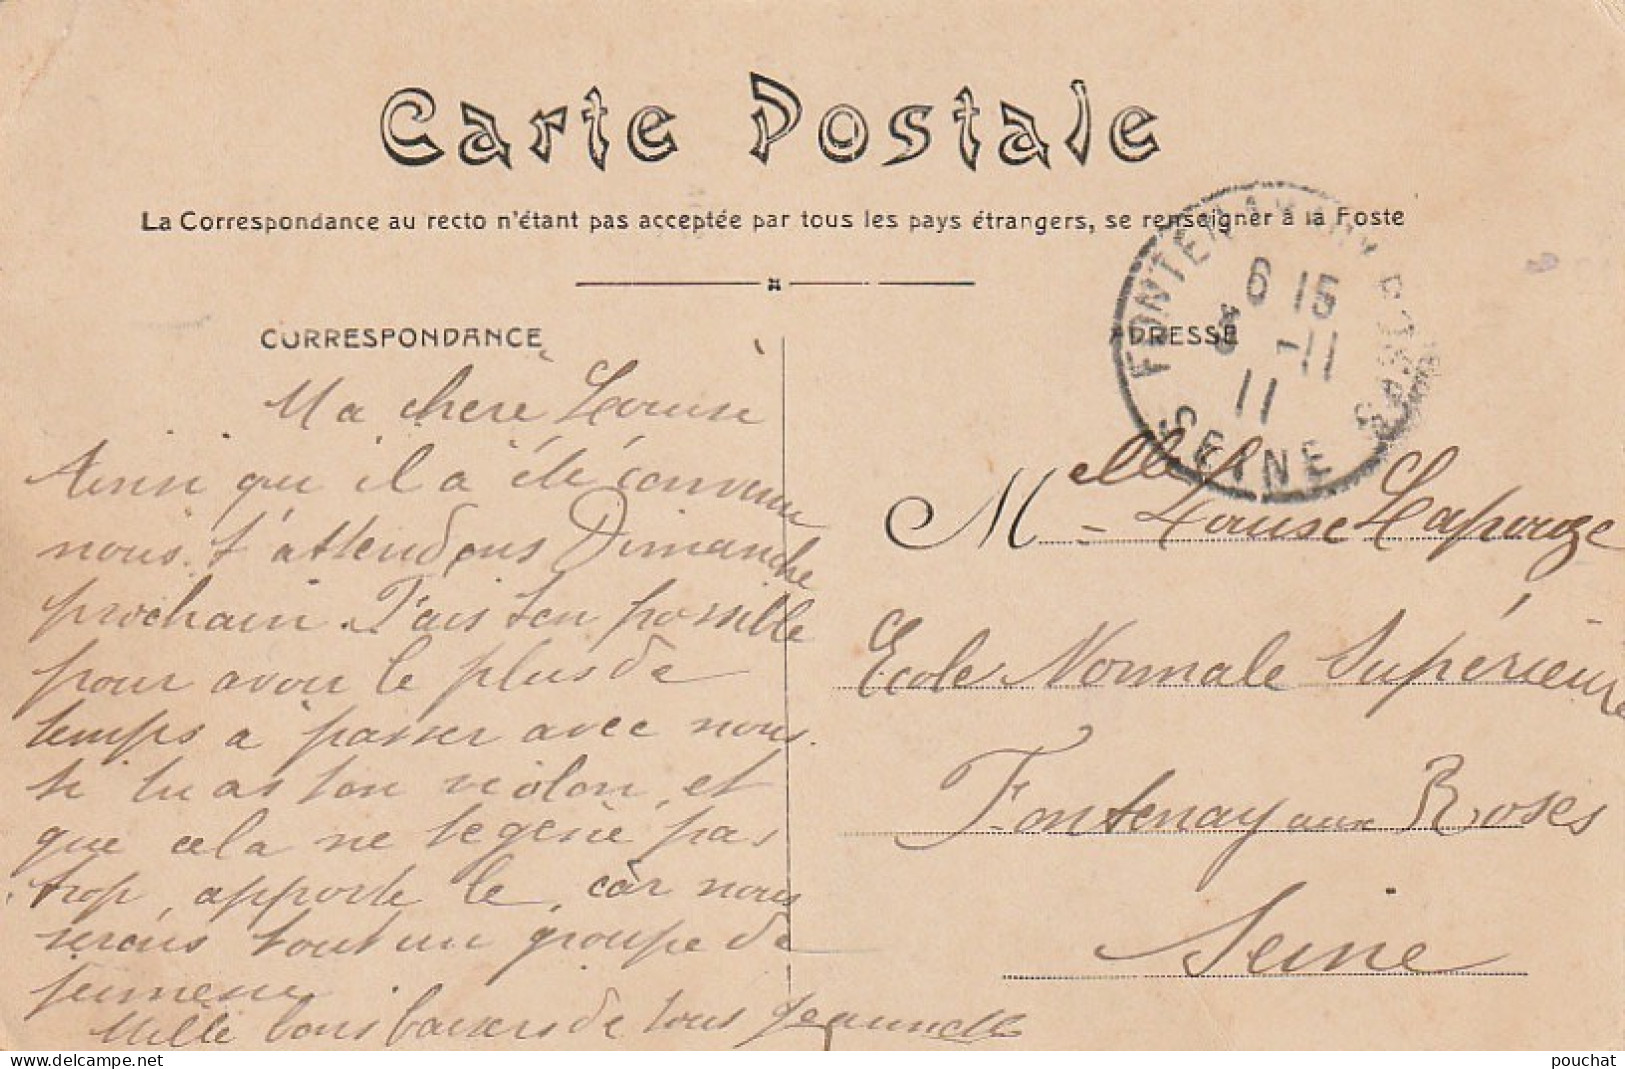 Carte Postale
La Correspondance au recto n'étant pas acceptée par tous les pays étrangers, se renseigner à la Poste
CORRESPONDANCE
ADRESSE
FONTENAY AUX ROSES
6 15
-11
11
SEINE
Ma chère Louise
Ainsi que il a été convenu
nous t'attendons Dimanche
prochain. Fais ton possible
pour avoir le plus de
temps à passer avec nous.
si tu as ton violon, et
que cela ne te gène pas
trop, apporte le, car nous
serons tout un groupe de
jeunesse.
Mille bons baisers de tous Jeannette
Melle Louise Lapouge
Ecole Normale Supérieure
Fontenay aux Roses
Seine
pouchat